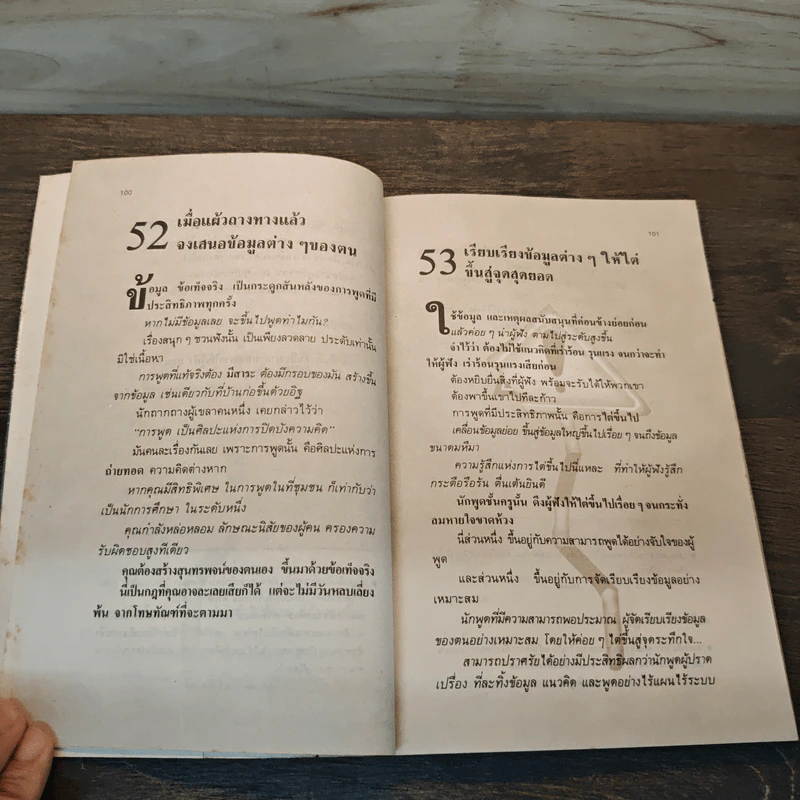 100
52 เมื่อแผ้วถางทางแล้ว
จงเสนอข้อมูลต่าง ๆของตน
ข้อมูล ข้อเท็จจริง เป็นกระดูกสันหลังของการพูดที่มี
ประสิทธิภาพทุกครั้ง
หากไม่มีข้อมูลเลย จะขึ้นไปพูดทำไมกัน?
เรื่องสนุก ๆ ชวนฟังนั้น เป็นเพียงลวดลาย ประดับเท่านั้น
มิใช่เนื้อหา
การพูดที่แท้จริงต้อง มีสาระ ต้องมีกรอบของมัน สร้างขึ้น
จากข้อมูล เช่นเดียวกับที่บ้านก่อขึ้นด้วยอิฐ
นักถากถางผู้เขลาคนหนึ่ง เคยกล่าวไว้ว่า
"การพูด เป็นศิลปะแห่งการปิดบังความคิด"
มันคนละเรื่องกันเลย เพราะการพูดนั้น คือศิลปะแห่งการ
ถ่ายทอด ความคิดต่างหาก
หากคุณมีสิทธิพิเศษ ในการพูดในที่ชุมชน ก็เท่ากับว่า
เป็นนักการศึกษา ในระดับหนึ่ง
คุณกำลังหล่อหลอม ลักษณะนิสัยของผู้คน ครองความ
รับผิดชอบสูงทีเดียว
คุณต้องสร้างสุนทรพจน์ของตนเอง ขึ้นมาด้วยข้อเท็จจริง
นี่เป็นกฎที่คุณอาจละเลยเสียก็ได้ แต่จะไม่มีวันหลบเลี่ยง
พ้น จากโทษทัณฑ์ที่จะตามมา
101
53 เรียบเรียงข้อมูลต่าง ๆ ให้ไต่
ขึ้นสู่จุดสุดยอด
ใช้ข้อมูล และเหตุผลสนับสนุนที่ค่อนข้างย่อยก่อน
แล้วค่อย ๆ นำผู้ฟัง ตามไปสู่ระดับสูงขึ้น
จำไว้ว่า ต้องไม่ใช้แนวคิดที่เร่าร้อน รุนแรง จนกว่าจะทำ
ให้ผู้ฟัง เร่าร้อนรุนแรงเสียก่อน
ต้องหยิบยื่นสิ่งที่ผู้ฟัง พร้อมจะรับได้ให้พวกเขา
ต้องพาขึ้นเขาไปทีละก้าว
การพูดที่มีประสิทธิภาพนั้น คือการไต่ขึ้นไป
เคลื่อนข้อมูลย่อย ขึ้นสู่ข้อมูลใหญ่ขึ้นไปเรื่อย ๆ จนถึงข้อมูล
ขนาดมหึมา
ความรู้สึกแห่งการไต่ขึ้นไปนี่แหละ ที่ทำให้ผู้ฟังรู้สึก
กระตือรือร้น ตื่นเต้นยินดี
นักพูดชั้นครูนั้น ดึงผู้ฟังให้ไต่ขึ้นไปเรื่อย ๆ จนกระทั่ง
ลมหายใจขาดห้วง
นี่ส่วนหนึ่ง ขึ้นอยู่กับความสามารถพูดได้อย่างจับใจของผู้
พูด
และส่วนหนึ่ง ขึ้นอยู่กับการจัดเรียบเรียงข้อมูลอย่าง
เหมาะสม
นักพูดที่มีความสามารถพอประมาณ ผู้จัดเรียบเรียงข้อมูล
ของตนอย่างเหมาะสม โดยให้ค่อย ๆ ไต่ขึ้นสู่จุดระทึกใจ...
สามารถปราศรัยได้อย่างมีประสิทธิผลกว่านักพูดผู้ปราด
เปรื่อง ที่ละทิ้งข้อมูล แนวคิด และพูดอย่างไร้แผนไร้ระบบ